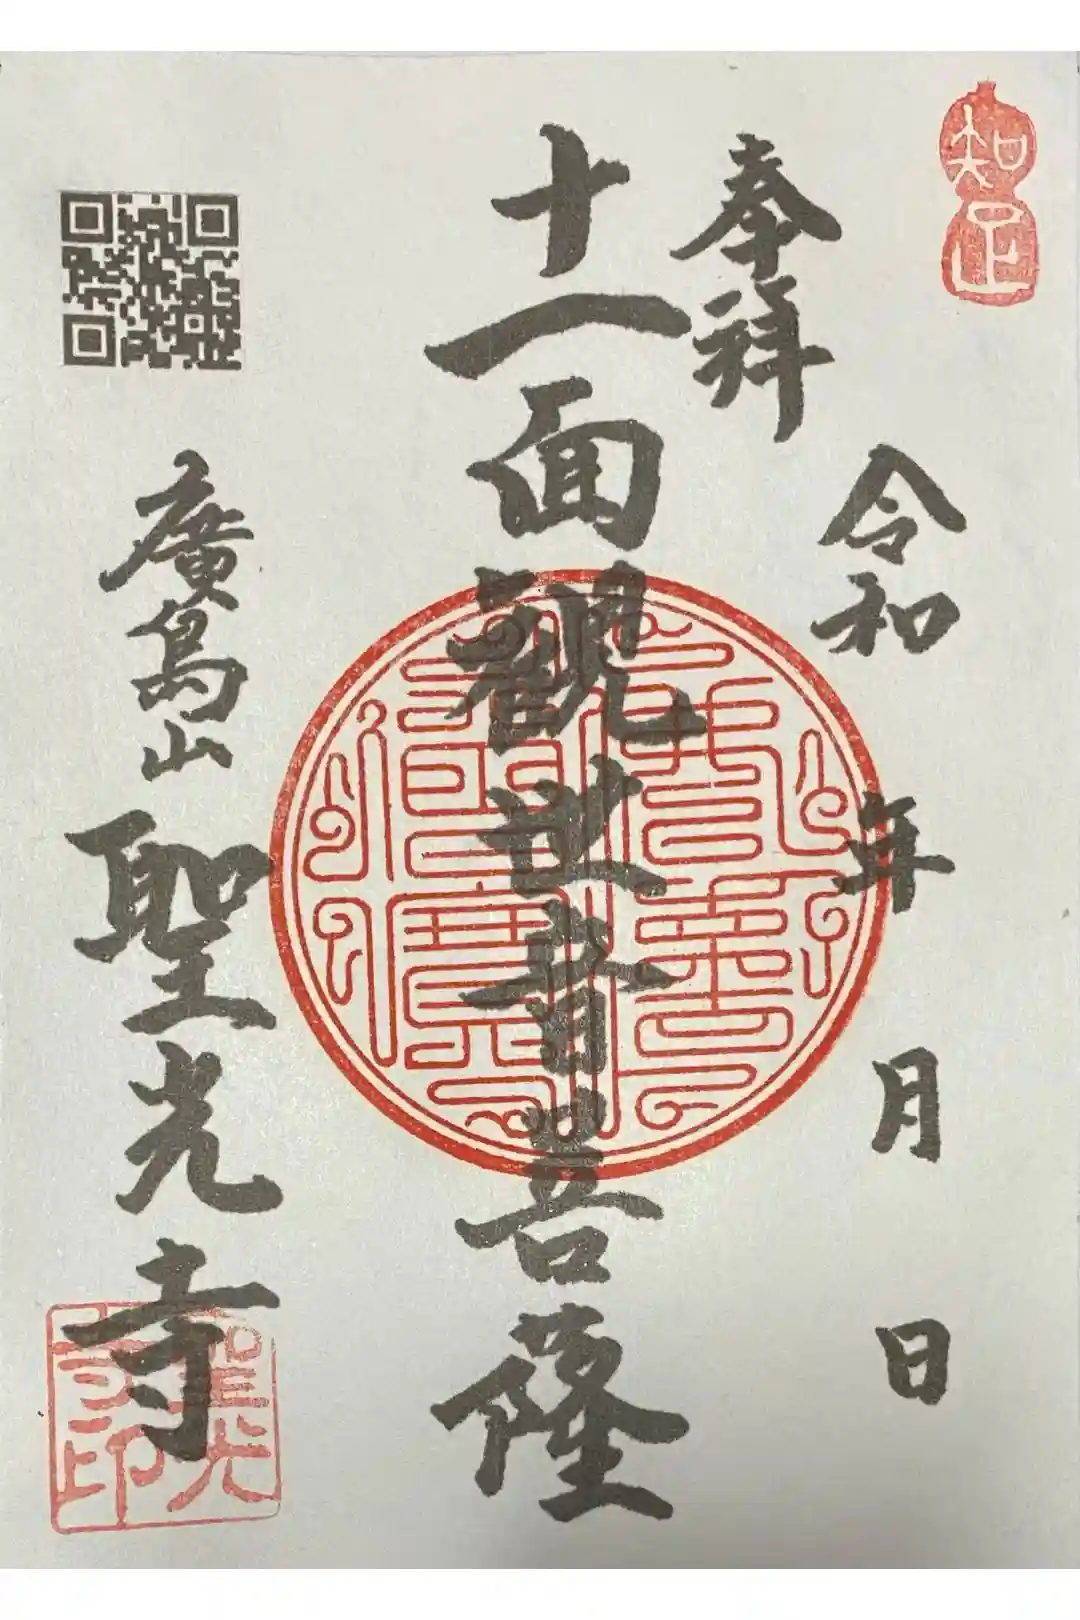 知足
奉拝
令和 年 月 日
十一面観世音菩薩
廣島山
聖光寺
聖光寺印